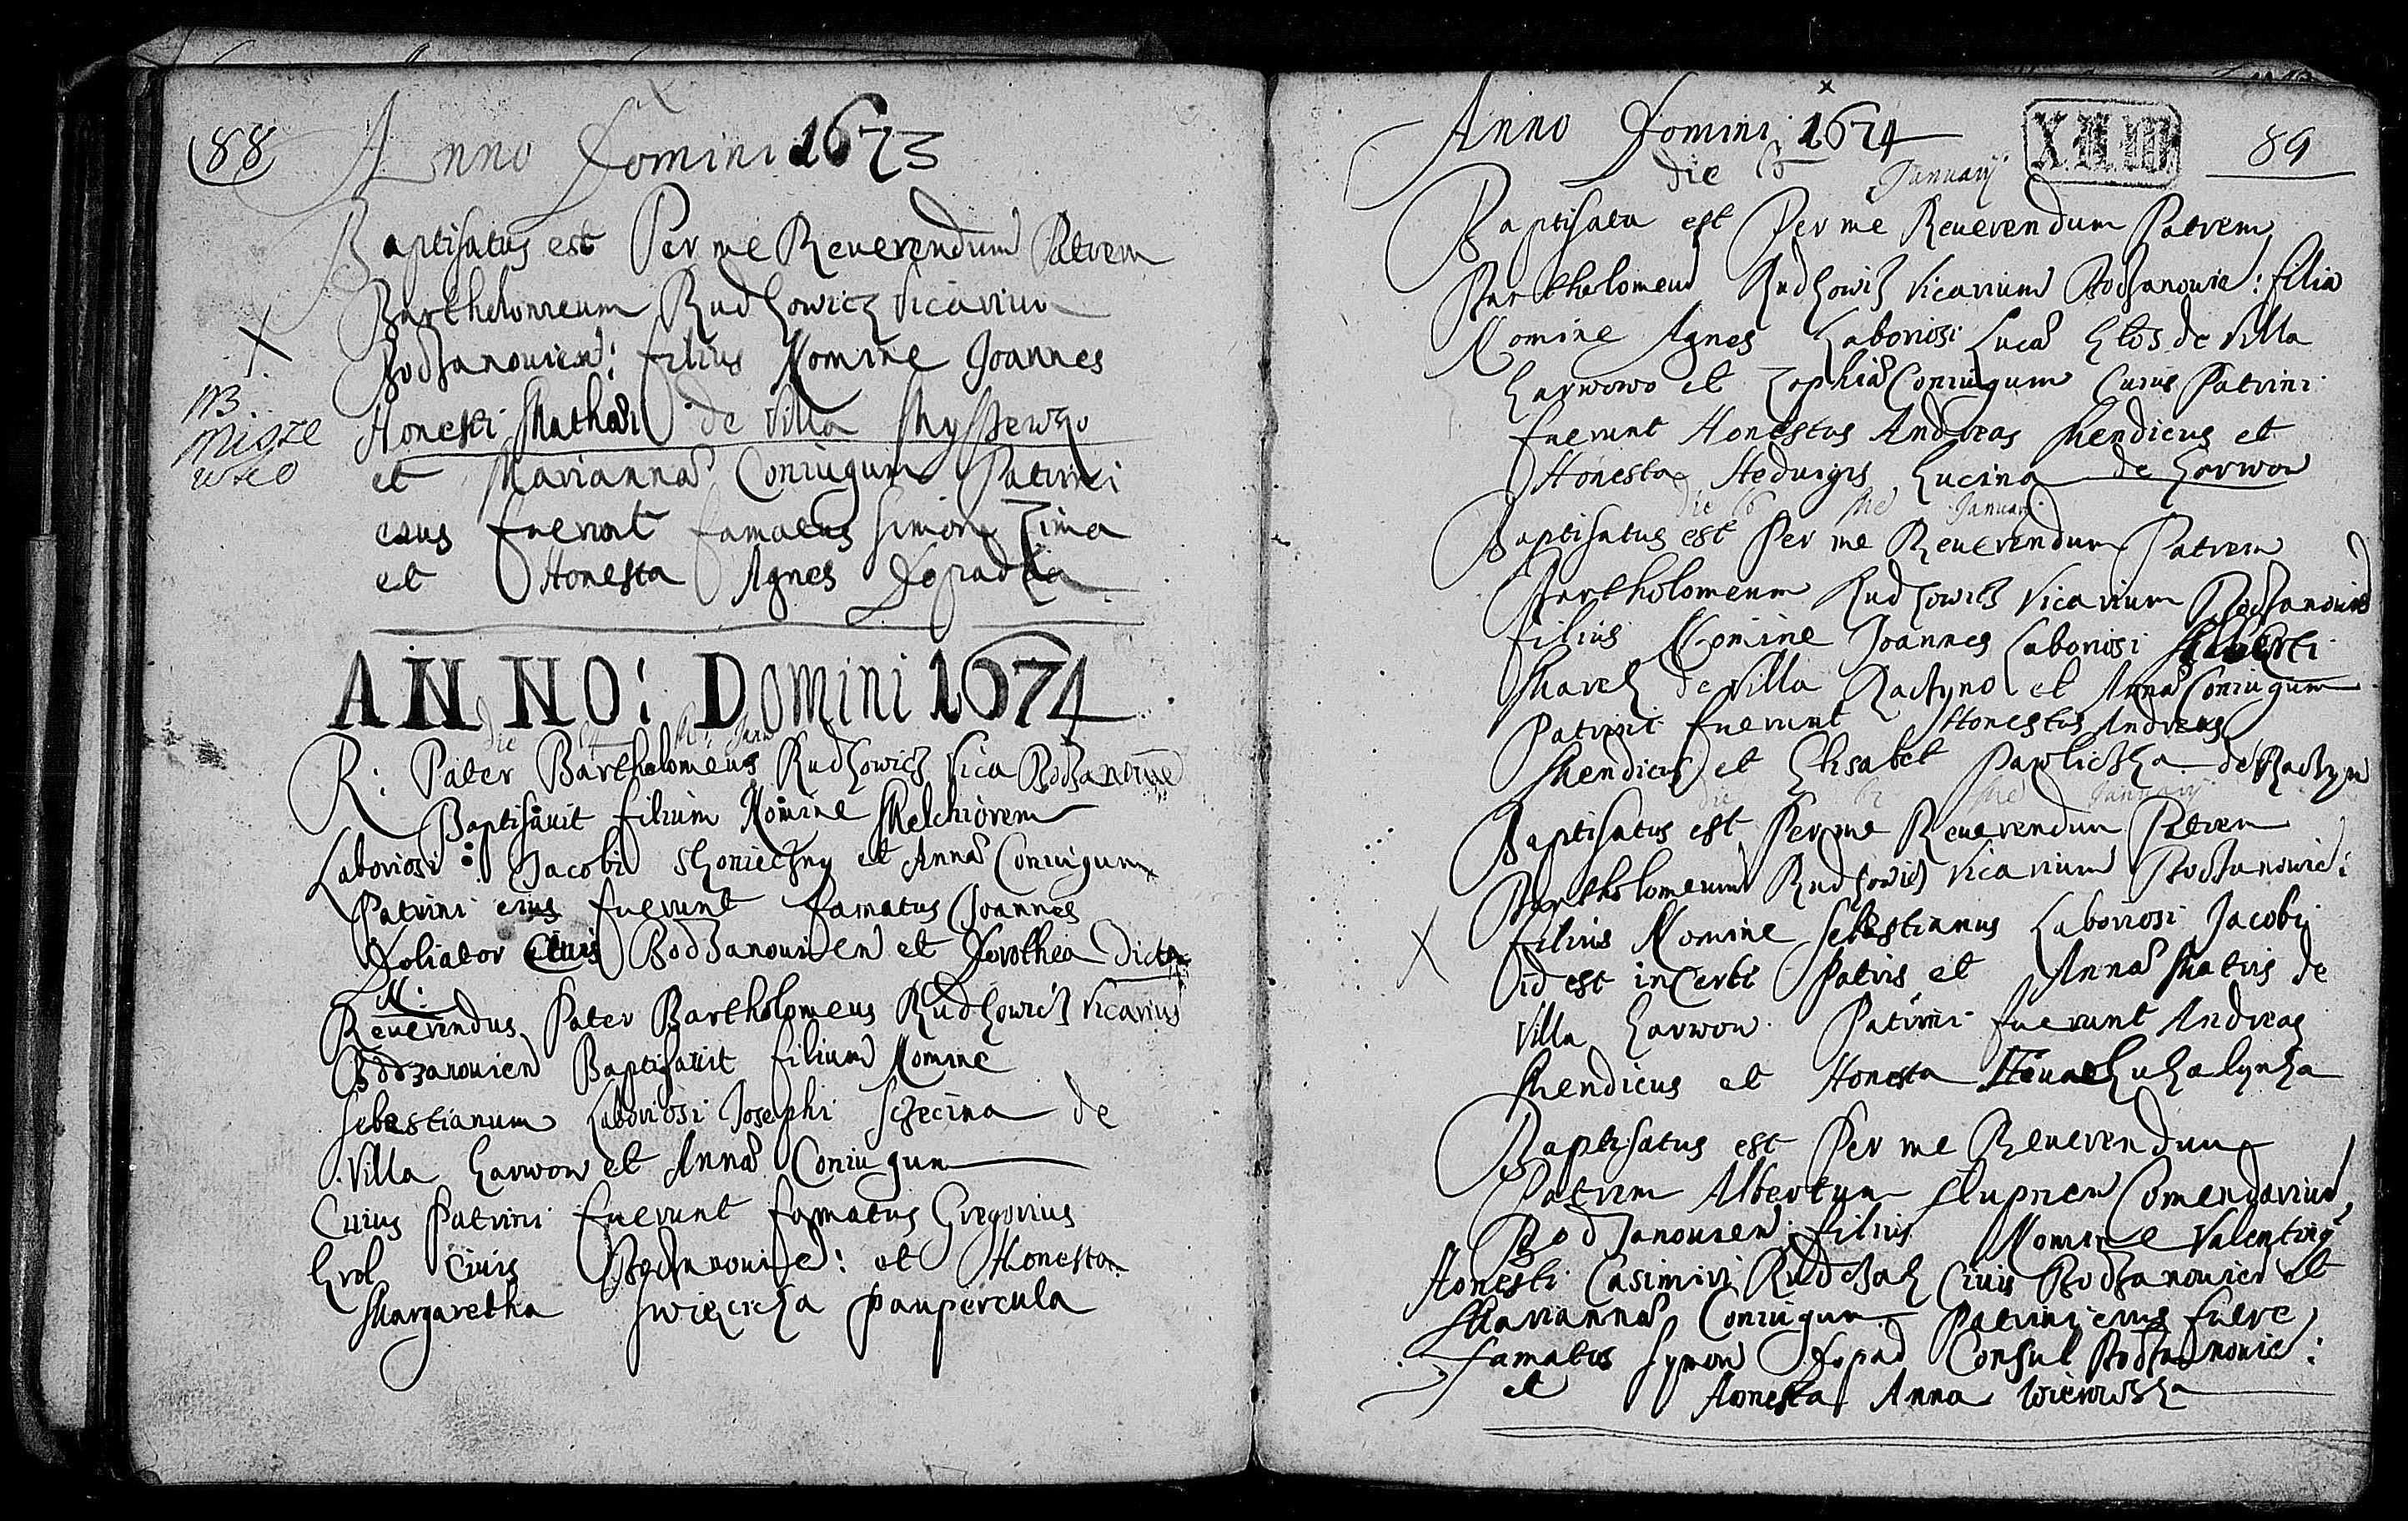 88
Anno Domini 1673
Baptisatus est Per me Reuerendum Patrem
Bartholomeum Rudkowicz Vicarium
Bodzanouien: filius Nomine Joannes
Honesti Mathæi de Villa Myszewko
et Mariannæ Coniugum Patrini
eius fuerunt famatus Simon Zima
et Honesta Agnes Dopadka
NB
Misze
wko
ANNO: Domini 1674
die Janu
R: Pater Bartholomeus Rudkowicz Vica Bodzanouie
Baptisauit filium Nomine Melchiorem
Laboriosi: Jacobi Skonieczny et Annæ Coniugum
Patrini eius fuerunt famatus Joannes
Doliator Ciuis Bodzanouien et Dorothea dicta
N:
Reuerendus Pater Bartholomeus Rudkowicz Vicarius
Bodzanouien Baptisauit filium Nomine
Sebestianum Laboriosi Josephi Sczecina de
Villa Garwow et Annæ Coniugum
Cuius Patrini fuerunt famatus Gregorius
Krol Ciuis Bodzanouie: et Honesta
Margaretha Swięcicka paupercula
Anno Domini 1674
89
die 6 Januarij
Baptisata est Per me Reuerendum Patrem
Bartholomeum Rudkowicz Vicarium Bodzanouie: filia
Nomine Agnes Laboriosi Lucæ Glos de Villa
Garwowo et Zophiæ Coniugum Cuius Patrini
fuerunt Honestus Andreas Mendicus et
Honesta Heduigis Lucina de Garwow
die 6 Januar
Baptisatus est Per me Reuerendum Patrem
Bartholomeum Rudkowicz Vicarium Bodzanouie
filius Nomine Joannes Laboriosi Alberti
Marek de Villa Ractyno et Annæ Coniugum
Patrini fuerunt Honestus Andreas
Mendicus et Elisabet Pawlicka de Ractyn
die Januarij
Baptisatus est Per me Reuerendum Patrem
Bartholomeum Rudkowicz Vicarium Bodzanouie:
filius Nomine Sebestianus Laboriosi Jacobi
id est incerti Patris et Annæ Matris de
Villa Garwow Patrini fuerunt Andreas
Mendicus et Honesta
Baptisatus est Per me Reuerendum
Patrem Albertum Slupnem Comendarium
Bodzanouien: filius Nomine Valentinus
Honesti Casimiri Rudczak Ciuis Bodzanouien et
Mariannæ Coniugum Patrini eius fuere
famatus Symon Dopad Consul Bodzanouie:
et Honesta Anna